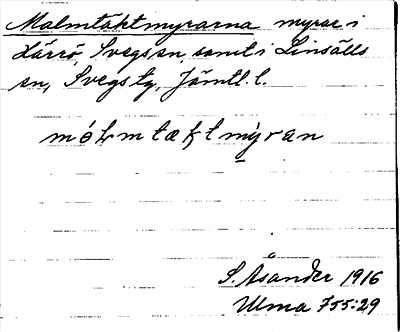 Malmtäktmyrarna myrar i
Lärrö, Svegs sn, samt i Linsälls
sn, Svegs tg, Jämtl. l.
mólmtæktmýran
S. Åsander 1916
Ulma 755:29